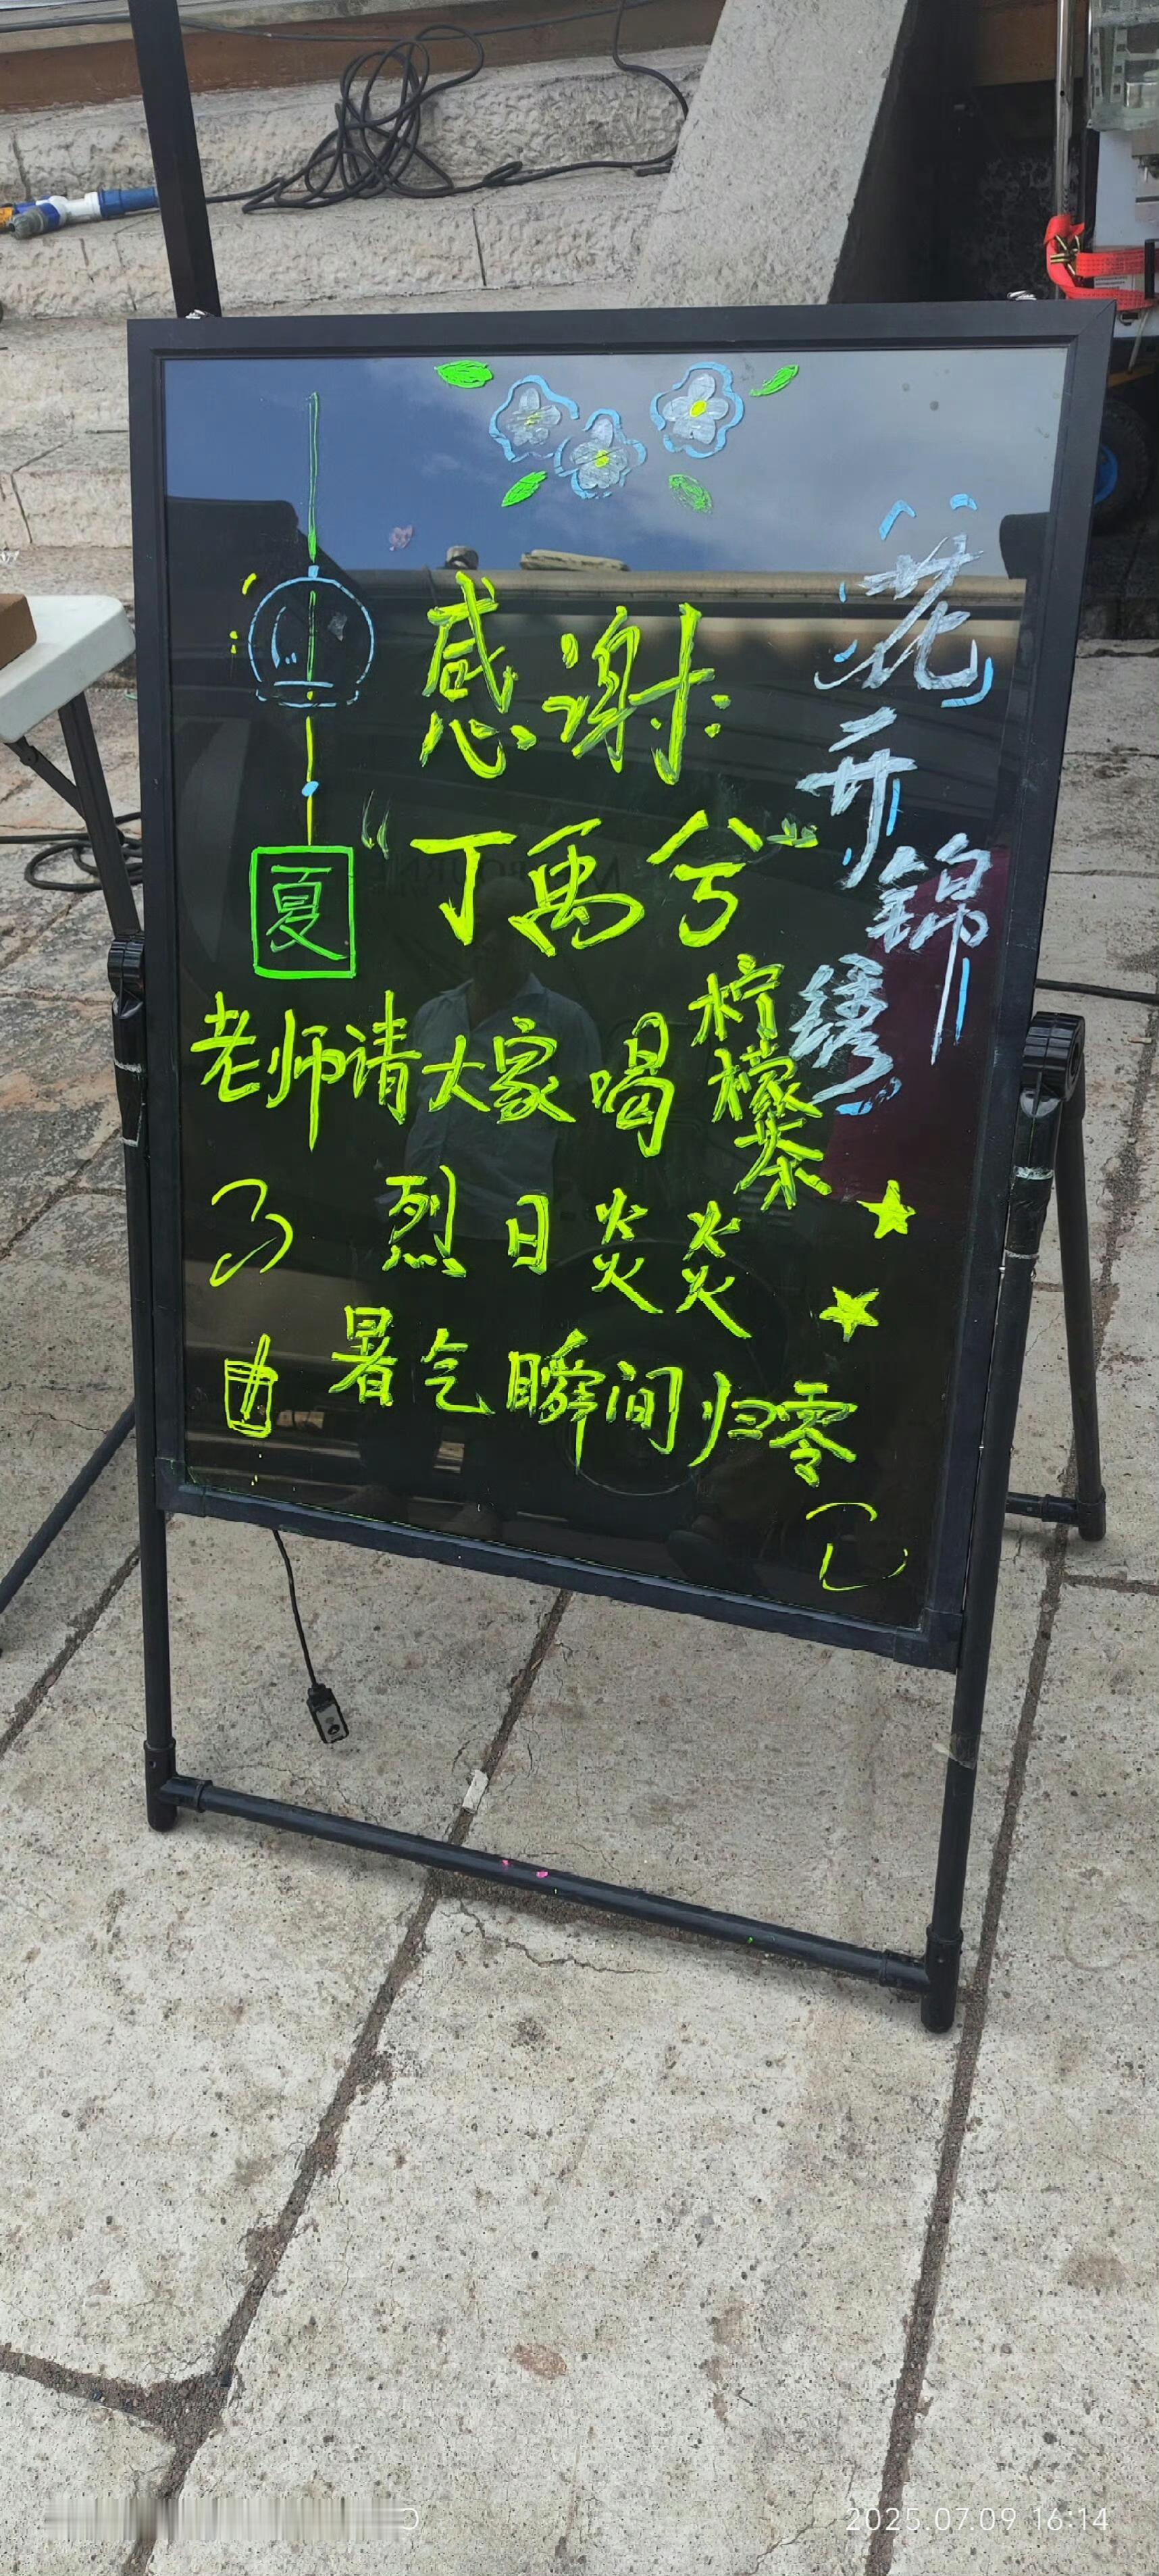 感谢
"丁禹兮"
老师请大家喝柠檬茶
了 烈日炎炎
暑气瞬间归零
夏
花开锦绣
2025.07.09 16:14